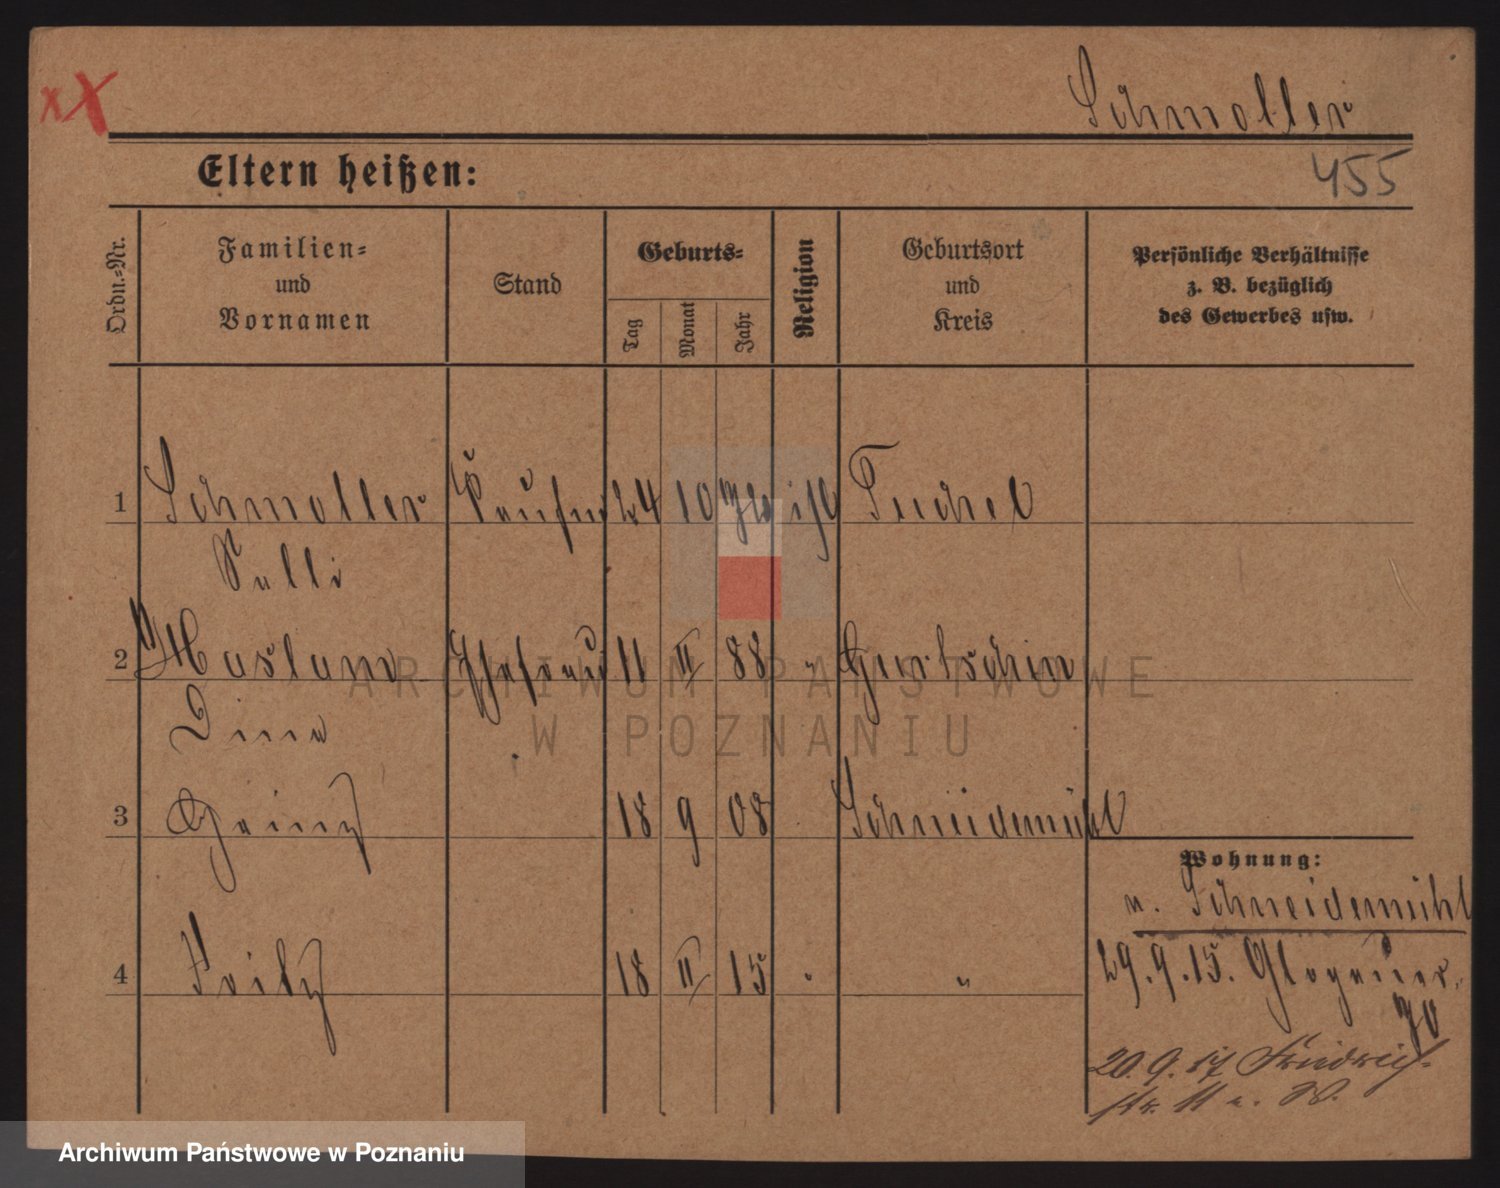 xX
Schmoller
Eltern heißen:
455
Ordn.-Nr.
Familien-
und
Vornamen
Stand
Geburts-
Tag
Monat
Jahr
Religion
Geburtsort
und
Kreis
Persönliche Verhältnisse
z. B. bezüglich
des Gewerbes usw.
1 Schmoller Kaufm 24 10 isr Tuchel
Salli
2 Ehefrau 11 II 88 "
Dina
3 Heinz 18 9 08 Schneidemühl
Wohnung:
n. Schneidemühl
4 Fritz 18 II 15 " "
29.9.15. Glogauer
70
20.9.17 Friedrich-
str. 11
ARCHIWUM PAŃSTWOWE
W POZNANIU
Archiwum Państwowe w Poznaniu